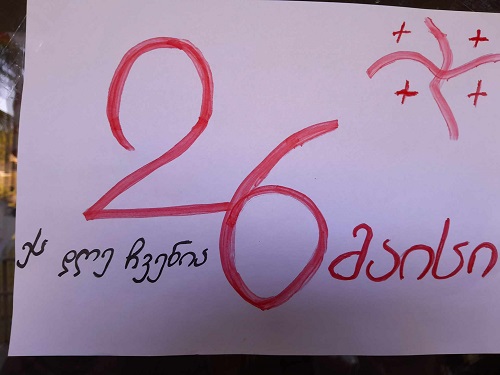 26
ეს დღე ჩვენია
მაისი